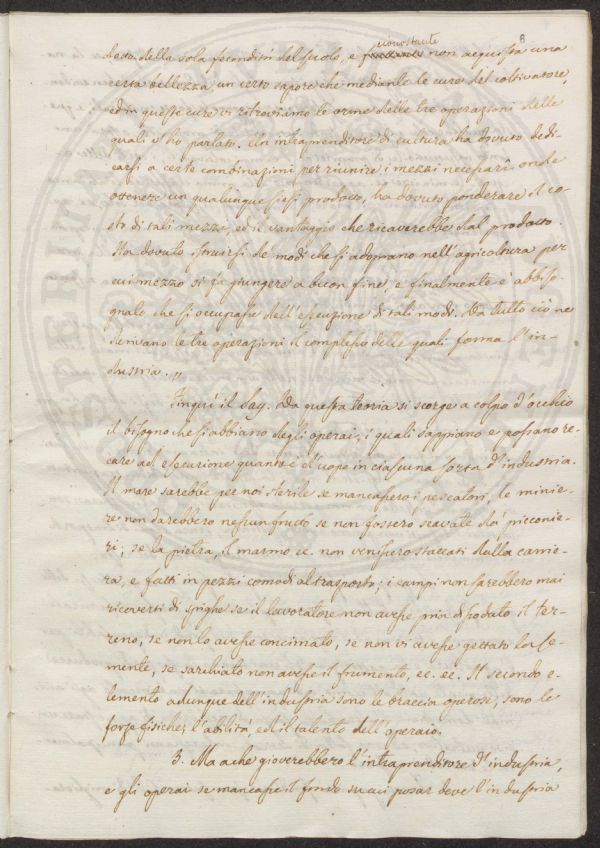 8
ciònostante
detta della sola fecondità del suolo, e non acquista una
certa bellezza un certo sapore che mediante le cure del coltivatore,
ed in queste cure vi ritroviamo le orme delle tre operazioni delle
quali v'ho parlato. Un intraprenditore di cultura ha dovuto dedi-
carsi a certe combinazioni per riunire i mezzi necessarî onde
ottenere un qualunque siasi prodotto, ha dovuto ponderare il co-
sto di tali mezzi, ed il vantaggio che ricaverebbe dal prodotto.
Ha dovuto istruirsi de' modi che si adoprano nell'agricoltura per
cui mezzo si fa giungere a buon fine, e finalmente è abbiso-
gnato che si occupasse dell'esecuzione di tali modi. Da tutto ciò ne
derivano le tre operazioni il complesso delle quali forma l'in-
dustria. „
Finquì il Say. Da questa teoria si scorge a colpo d'occhio
il bisogno che si abbiano degli operai, i quali sappiano e possano re-
care ad esecuzione quanto è d'uopo in ciascuna sorta d'industria.
Il mare sarebbe per noi sterile se mancassero i pescatori, le minie-
re non darebbero nessun frutto se non fossero scavate da' picconie-
ri; se la pietra, il marmo ec. non venissero staccati dalla carrie-
ra, e fatti in pezzi comodi al trasporto; i campi non sarebbero mai
ricoverti di spighe se il lavoratore non avesse pria dissodato il ter-
reno, se non lo avesse concimato, se non vi avesse gettato la se-
mente, se sarchiato non avesse il frumento, ec. ec. Il secondo e-
lemento adunque dell'industria sono le braccia operose, sono le
forze fisiche, l'abilità, ed il talento dell'operaio.
3. Ma a che gioverebbero l'intraprenditore d'industria,
e gli operai se mancasse il fondo su cui posar deve l'industria